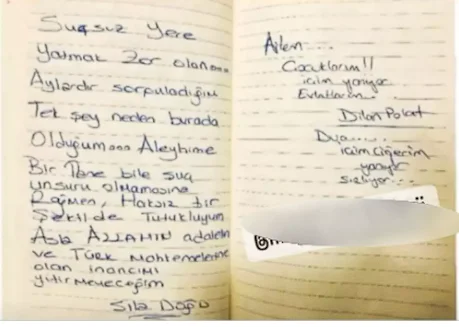 Suçsuz Yere
Yatmak Zor olanı
Aylardır sorguladığım
Tek şey neden burada
Olduğum Aleyhime
Bir Tane bile suç
unsuru olmamasına
Rağmen, Haksız bir
Şekilde Tutukluyum
Asla ALLAHIN adaletine
ve TÜRK mahkemelerine
olan inancımı
yitirmeyeceğim
Sıla Doğu
Ailem....
Çocuklarım!!
içim yanıyor
Evlatlarım..
Dilan Polat
Dua.....
içim Ciğerim
yanıyor
sızlıyor...